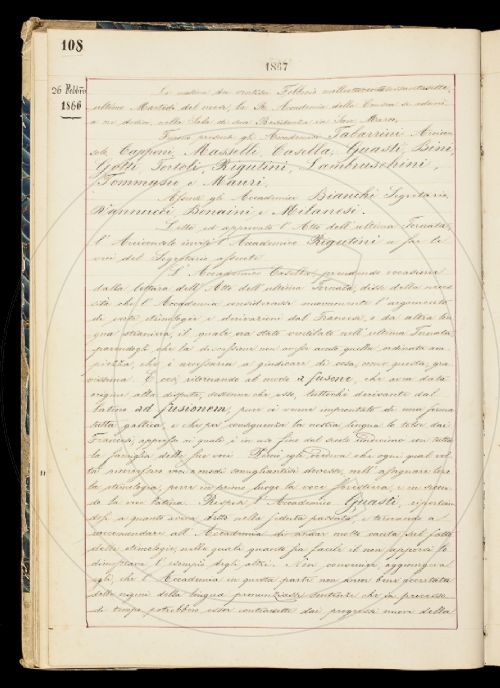 108
1867
26 Febbro
1866
La mattina dei ventisei Febbraio milleottocentosessantasette,
ultimo Martedì del mese, la R. Accademia della Crusca si adunò
a ore dodici, nella Sala di sua Residenza in San Marco.
Furono presenti gli Accademici Tabarrini Arcicon
solo, Capponi, Masselli, Casella, Guasti, Bini,
Gotti, Tortoli, Rigutini, Lambruschini,
Tommaseo e Mauri.
Assenti gli Accademici Bianchi Segretario,
Vannucci, Bonaini e Milanesi.
Letto ed approvato l'Atto dell'ultima Tornata,
l'Arciconsolo invitò l'Accademico Rigutini a far le
veci del Segretario assente.
L'Accademico Casella, prendendo occasione
dalla lettura dell'Atto dell'ultima Tornata, disse della neces
sità che l'Accademia considerasse nuovamente l'argomento
di certe etimologie e derivazioni dal Francese, o da altra lin
gua straniera, il quale era stato ventilato nell'ultima Tornata,
parendogli che la discussione non avesse avuto quella ordinata am
piezza, che è necessaria a giudicare di cosa, come questa, gra
vissima. E così ritornando al modo a fusone, che avea data
origine alla disputa, sostenne che esso, tuttochè derivante dal
latino ad fusionem, pure ci venne improntato di una forma
tutta gallica, e che per conseguenza la nostra lingua lo tolse dai
Francesi, appresso ai quali è in uso fino dal secolo undecimo con tutta
la famiglia delle sue voci. Perciò egli credeva che ogni qual vol
ta avvenisse voci o modi somiglianti si dovesse, nell'assegnare loro
la etimologia, porre in primo luogo la voce forestiera, e in secon
do la voce latina. Rispose l'Accademico Guasti, riportan
dosi a quanto aveva detto nella seduta passata, e tornando a
raccomandare all'Accademia di andar molto cauta sul fatto
delle etimologie, nelle quali quanto sia facile il non apporsi lo
dimostrava l'esempio degli altri. Non convenire, aggiungeva
egli, che l'Accademia in questa parte non pur bene accertata
delle origini della lingua pronunziasse sentenze che in processo
di tempo potrebbero esser contradette dai progressi nuovi della